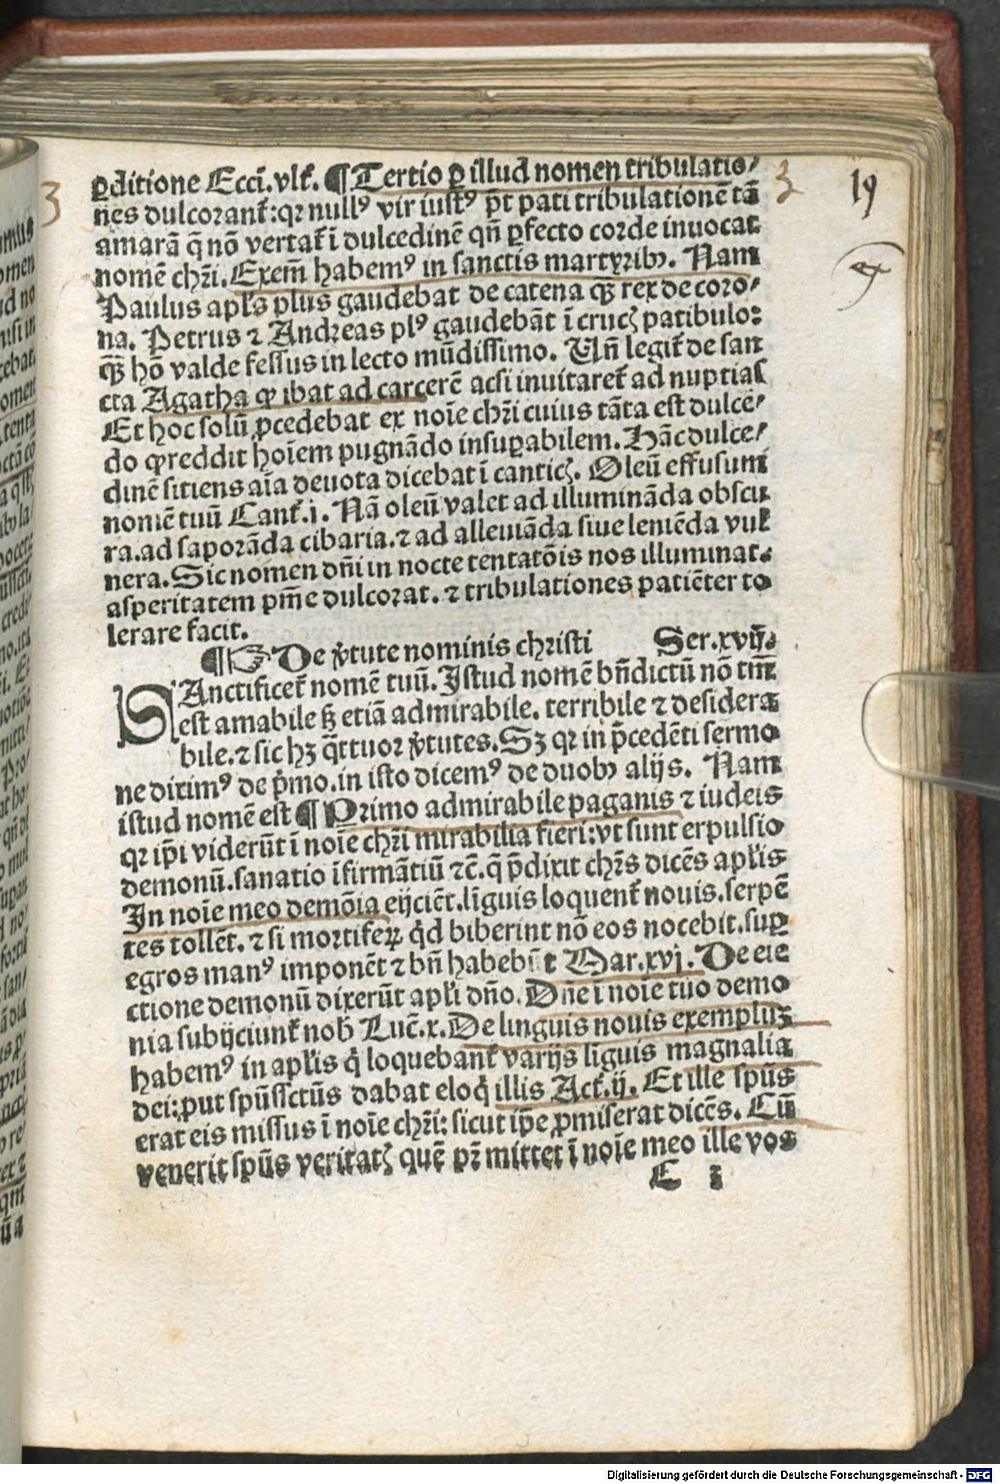 ꝑditione Ecci̅.vlt̉. ¶ Tertio ꝑ illud nomen tribulatio⸗
nes dulcorant̉:qꝛ nullꝰ vir iustꝰ p̅t pati tribulatione̅ ta̅
amara̅ q̅ no̅ vertat̉ i̅ dulcedine̅ qn̅ ꝑfecto corde inuocat
nome̅ chꝛ̅i. Exem̅ habemꝰ in sanctis martyribꝫ. Nam
Paulus apl̅s plus gaudebat de catena qꝫ̅ rex de coro⸗
na. Petrus ⁊ Andreas plꝰ gaudeba̅t i̅ crucꝫ patibulo:
qꝫ̅ ho̅ valde fessus in lecto mu̅dissimo. Vn̅ legit̉ de san
cta Agatha ꝙ ibat ad carcere̅ acsi inuitaret̉ ad nuptias
Et hoc solu̅ ꝓcedebat ex no̅ie chꝛ̅i cuius ta̅ta est dulce̅⸗
do ꝙ reddit hoi̅em pugna̅do insuꝑabilem. Ha̅c dulce⸗
dine̅ sitiens ai̅a deuota dicebat i̅ canticꝫ. Oleu̅ effusum
nome̅ tuu̅ Cant̉.i. Na̅ oleu̅ valet ad illumina̅da obscu
ra.ad sapora̅da cibaria.⁊ ad alleuia̅da siue lenie̅da vul
nera. Sic nomen dn̅i in nocte tentato̅is nos illuminat.
asperitatem pni̅e dulcorat. ⁊ tribulationes patie̅ter to
lerare facit.
¶ ☞ De v̉tute nominis christi Ser.xvij.
SAnctificet̉ nome̅ tuu̅. Istud nome̅ bn̅dictu̅ no̅ tm̅
est amabile sꝫ etia̅ admirabile. terribile ⁊ desidera
bile.⁊ sic hꝫ q̅ttuor v̉tutes. Sꝫ qꝛ in p̅cede̅ti sermo
ne diximꝰ de p̉mo.in isto dicemꝰ de duobꝫ alijs. Nam
istud nome̅ est ¶ Primo admirabile paganis ⁊ iudeis
qꝛ ip̅i videru̅t i̅ no̅ie chꝛ̅i mirabilia fieri:vt sunt expulsio
demonu̅.sanatio i̅firma̅tiu̅ ⁊c̅.q̅ p̅dixit chꝛ̅s dice̅s apl̅is
In no̅ie meo demo̅ia eijcie̅t.li̅guis loquent̉ nouis.serpe̅
tes tolle̅t.⁊ si mortifeꝝ q̉d biberint no̅ eos nocebit.suꝑ
egros manꝰ impone̅t ⁊ bn̅ habebu̅t Mar.xvj. De eie
ctione demonu̅ dixeru̅t apl̅i dn̅o. Dn̅e i̅ no̅ie tuo demo
nia subijciunt̉ nob̅ Luc̅.x. De linguis nouis exempluꝫ
habemꝰ in apl̅is q̉ loquebant̉ varijs li̅guis magnalia
dei:ꝓut spu̅ssctu̅s dabat eloq̉ illis Act̉.ij. Et ille spu̅s
erat eis missus i̅ no̅ie chꝛ̅i: sicut ip̅e ꝓmiserat dice̅s. Cu̅
venerit spu̅s veritatꝫ que̅ pr̅ mittet i̅ no̅ie meo ille vos
C i
3
3
19
Digitalisierung gefördert durch die Deutsche Forschungsgemeinschaft - DFG